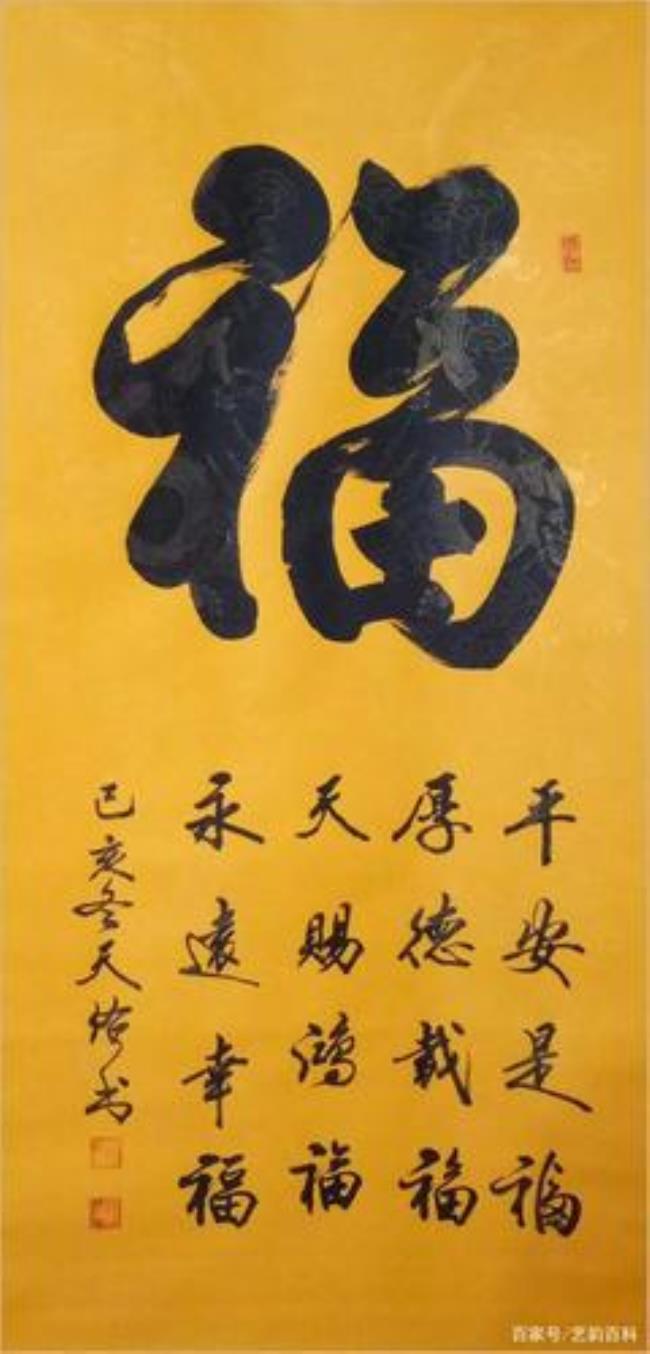 福
平安是福
厚德载福
天赐鸿福
永遠幸福
己亥冬天佑书
百家号/艺韵百科